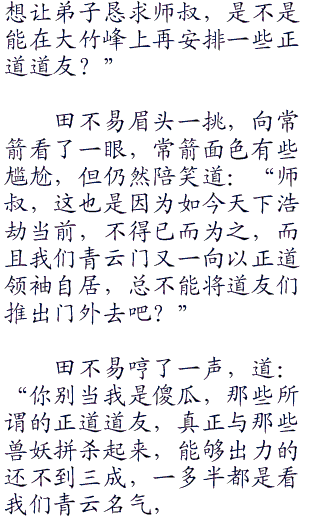 想让弟子恳求师叔，是不是
能在大竹峰上再安排一些正
道道友？”
田不易眉头一挑，向常
箭看了一眼，常箭面色有些
尴尬，但仍然陪笑道：“师
叔，这也是因为如今天下浩
劫当前，不得已而为之，而
且我们青云门又一向以正道
领袖自居，总不能将道友们
推出门外去吧？”
田不易哼了一声，道：
“你别当我是傻瓜，那些所
谓的正道道友，真正与那些
兽妖拼杀起来，能够出力的
还不到三成，一多半都是看
我们青云名气，